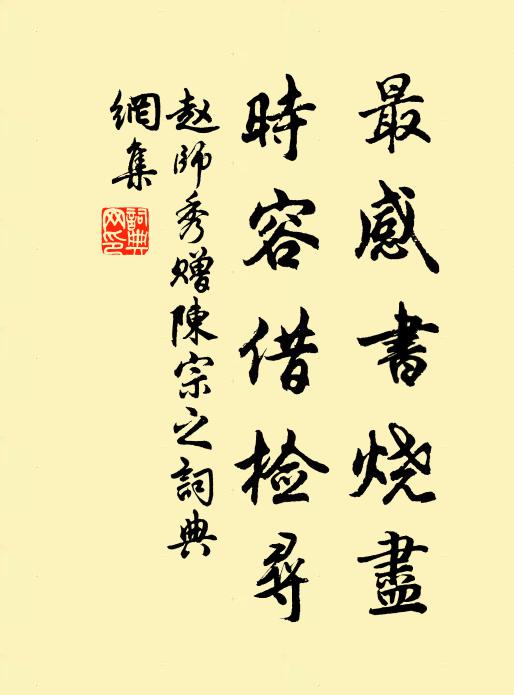 最感書烧盡
時容借檢尋
赵師秀赠陳宗之詞典
網集
詞典
网印